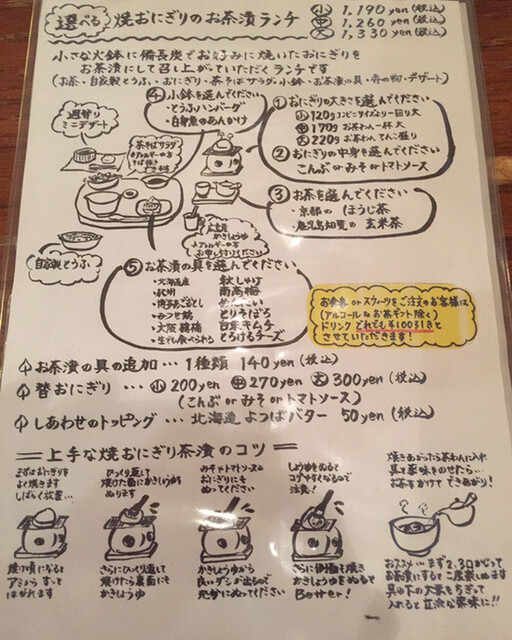 選べる 焼おにぎりのお茶漬ランチ
小 1,190yen (税込)
中 1,260yen (税込)
大 1,330yen (税込)
小さな火鉢に備長炭でお好みに焼いたおにぎりを
お茶漬にして召し上がっていただくランチです
(お茶・自家製とうふ・おにぎり・茶そばサラダ・小鉢・お茶漬の具・香の物・デザート)
④小鉢を選んでください
・とうふハンバーグ
・白身魚のあんかけ
①おにぎりの大きさを選んでください
小 120g コンビニサイズより一回り大
中 170g お茶わん一杯大
大 220g お茶わんてんこ盛り
②おにぎりの中身を選んでください
こんぶ or みそ or トマトソース
③お茶を選んでください
・京都の ほうじ茶
・鹿児島知覧の 玄米茶
週替り
ミニデザート
茶そばサラダ
自家製とうふ
かきしょうゆ
⑤お茶漬の具を選んでください
・北海道産 秋しゃけ
・紀州 南高梅
・みつせ鶏 とりそぼろ
・大阪鶴橋 白菜キムチ
・生でも食べられる とろけるチーズ
お食事 or スウィーツをご注文のお客様は
(アルコール & お茶ギフト除く)
ドリンク どれでも¥100引きと
させていただきます!
お茶漬の具の追加…1種類 140yen (税込)
替おにぎり…小200yen 中270yen 大300yen (税込)
(こんぶ or みそ or トマトソース)
しあわせのトッピング…北海道よつばバター 50yen (税込)
上手な焼おにぎり茶漬のコツ
まずはおにぎりを
よく焼きます
しばらく放置…
焼け頃になると
アミからすっと
はがれます
ひっくり返して
焼けた面にかきしょうゆを
ぬります
さらにひっくり返して
焼けたら裏面にも
かきしょうゆ
みそやトマトソースの
おにぎりにも
ぬってください
かきしょうゆから
良いダシが出るので
充分にぬってください
しょうゆをぬると
コゲやすくなるので
注意!
かきしょうゆをぬると
Better!
焼きあがったら茶わんに入れ
具と薬味をのせたら…
お茶をかけてできあがり!
おススメ…まず2,3口かじって
お茶漬にすると二度楽しめます
入れると立派な薬味に!!